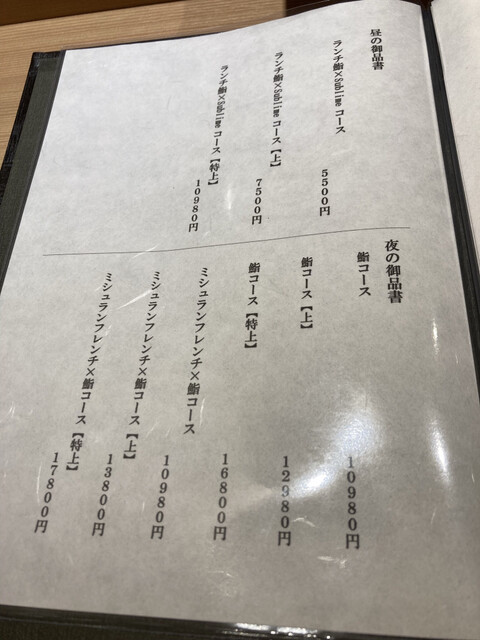 昼の御品書
ランチ鮨×Sublime コース 5500円
ランチ鮨×Sublime コース【上】 7500円
ランチ鮨×Sublime コース【特上】 10980円
夜の御品書
鮨コース 10980円
鮨コース【上】 12980円
鮨コース【特上】 16800円
ミシュランフレンチ×鮨コース 10980円
ミシュランフレンチ×鮨コース【上】 13800円
ミシュランフレンチ×鮨コース【特上】 17800円